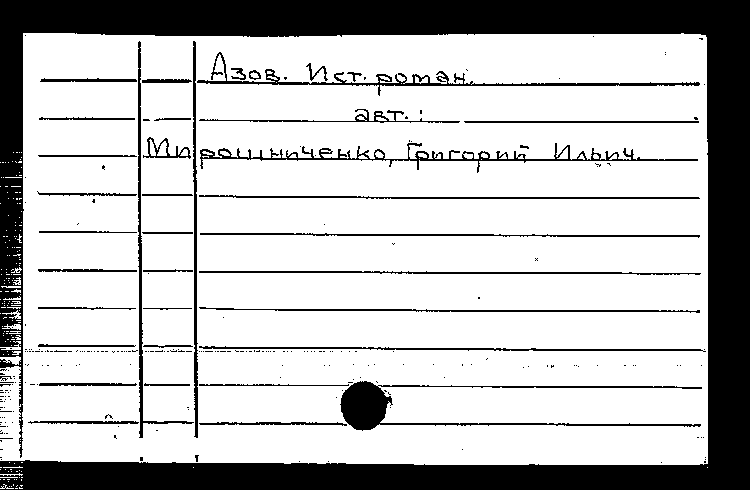 Азов. Ист. роман.
авт.:
Мирошниченко, Григорий Ильич.